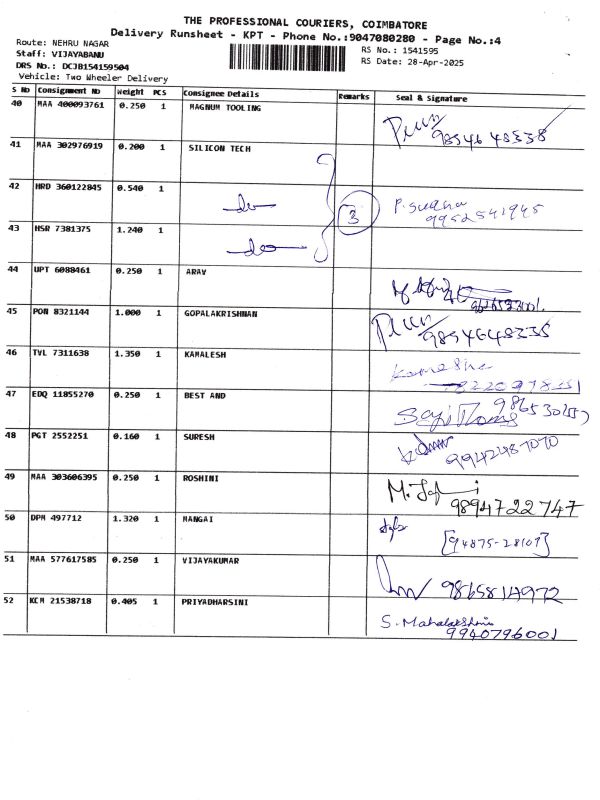 THE PROFESSIONAL COURIERS, COIMBATORE
Delivery Runsheet - KPT - Phone No.:9047080280 - Page No.:4
Route: NEHRU NAGAR
Staff: VIJAYABANU
DRS No.: DCJB154159504
Vehicle: Two Wheeler Delivery
RS No.: 1541595
RS Date: 28-Apr-2025
S No Consignment No Weight PCS Consignee Details Remarks Seal & Signature
40 MAA 400093761 0.250 1 MAGNUM TOOLING
41 MAA 302976919 0.200 1 SILICON TECH
42 HRD 360122845 0.540 1 3 P. Sudha
9952541945
43 HSR 7381375 1.240 1
44 UPT 6088461 0.250 1 ARAV
45 PON 8321144 1.000 1 GOPALAKRISHNAN
46 TVL 7311638 1.350 1 KAMALESH
47 EDQ 11855270 0.250 1 BEST AND
48 PGT 2552251 0.160 1 SURESH
9942487070
49 MAA 303606395 0.250 1 ROSHINI
9894722747
50 DPM 497712 1.320 1 MANGAI
[94875-28107]
51 MAA 577617585 0.250 1 VIJAYAKUMAR
9865814972
52 KCM 21538718 0.405 1 PRIYADHARSINI
S. Mahalakshmi
9940796001